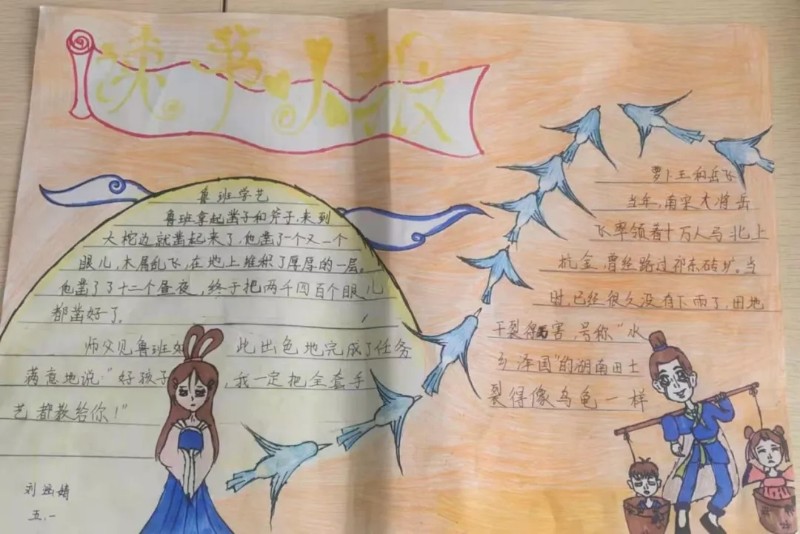 读书小报
鲁班学艺
鲁班拿起凿子和斧子,来到
大柁边就凿起来了,他凿了一个又一个
眼儿,木屑乱飞,在地上堆积了厚厚的一层。
他凿了了十二个昼夜,终于把两千四百个眼儿
都凿好了。
师父见鲁班如此出色地完成了任务
满意地说:“好孩子,我一定把全套手
艺都教给你!”
刘 婧
五.一
萝卜王和岳飞
当年,南宋大将岳
飞率领着十万人马北上
抗金,曾经路过祁东砖圹。当
时,已经很久没有下雨了,田地
干裂得厉害,号称“水
乡泽国”的湖南田土
裂得像乌龟一样